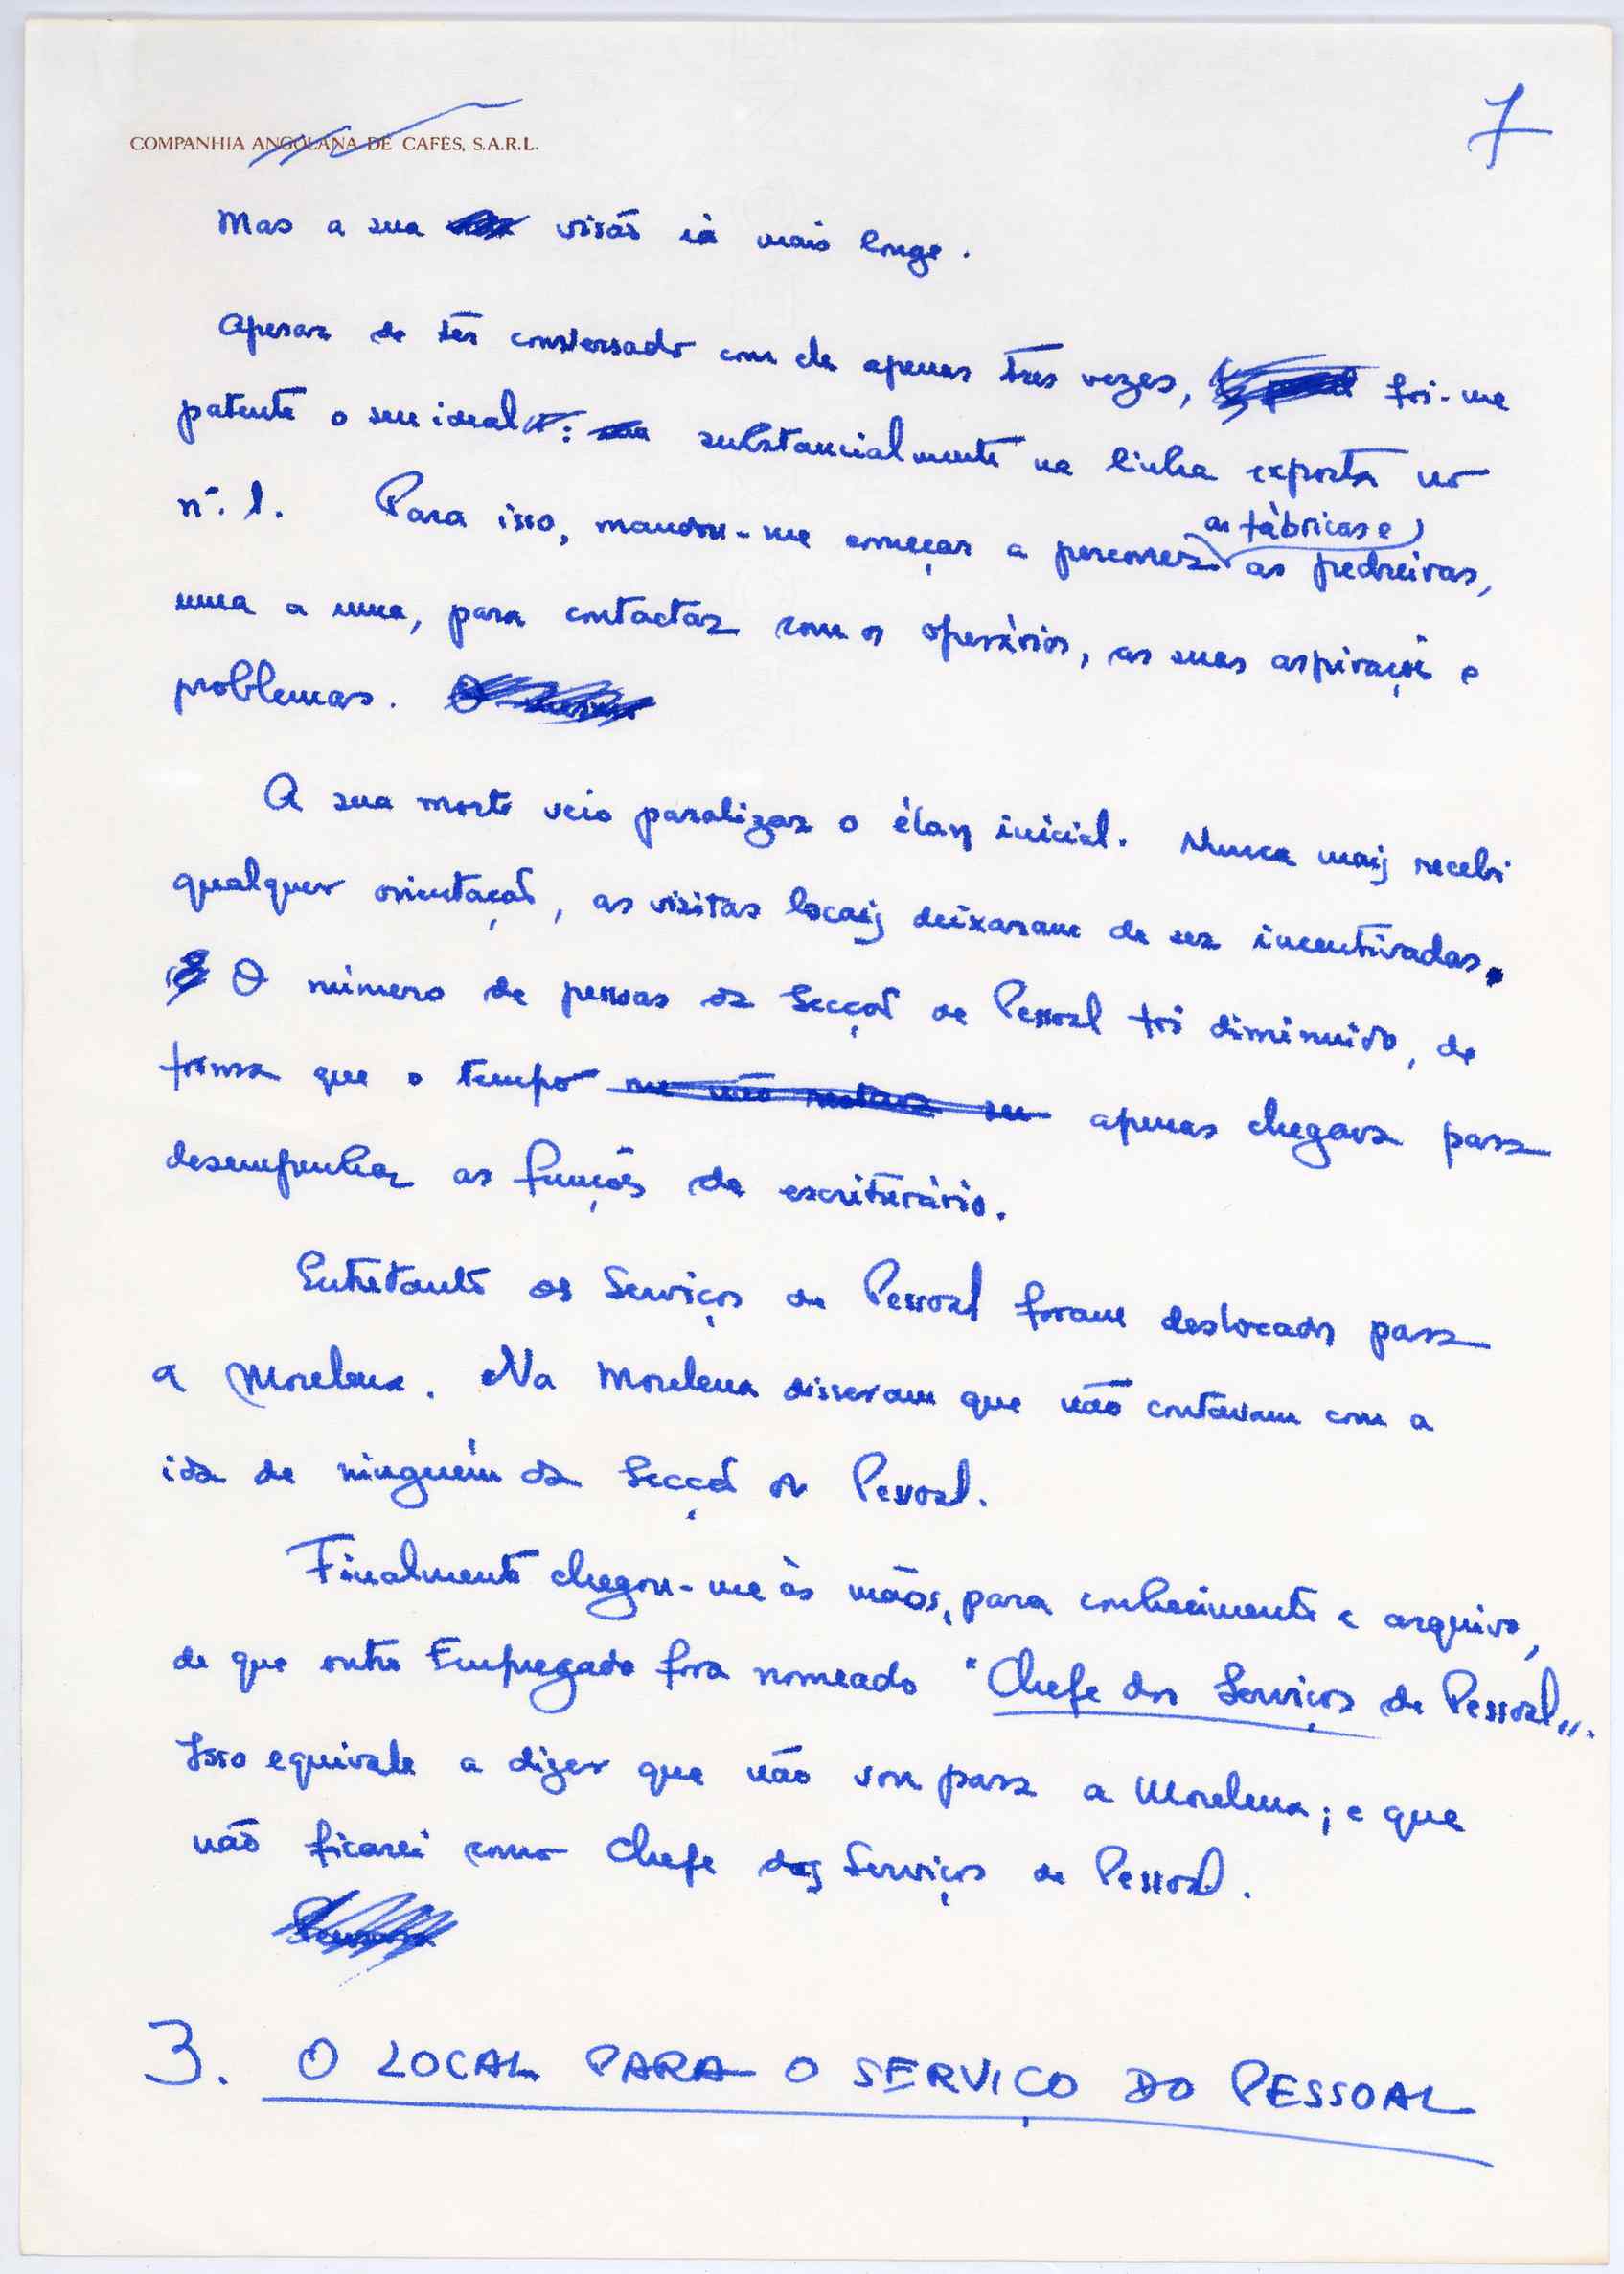 COMPANHIA ANGOLANA DE CAFÉS, S.A.R.L.
7
Mas a sua visão ia mais longe.
Apesar de ter conversado com ele apenas três vezes, foi-me
patente o seu ideal: substancialmente na linha exposta no
nº. 1. Para isso, mandou-me começar a percorrer as fábricas e as pedreiras,
uma a uma, para contactar com os operários, as suas aspirações e
problemas.
A sua morte veio paralizar o élan inicial. Nunca mais recebi
qualquer orientação, as visitas locais deixaram de ser incentivadas.
O número de pessoas da Secção de Pessoal foi diminuído, de
forma que o tempo me não restava apenas chegava para
desempenhar as funções de escriturário.
Entretanto os Serviços de Pessoal foram deslocados para
a Morelena. Na Morelena disseram que não contavam com a
ida de ninguém da Secção de Pessoal.
Finalmente chegou-me às mãos, para conhecimento e arquivo,
de que outro Empregado fora nomeado "Chefe dos Serviços de Pessoal".
Isso equivale a dizer que não vou para a Morelena; e que
não ficarei como Chefe dos Serviços de Pessoal.
3. O LOCAL PARA O SERVIÇO DO PESSOAL